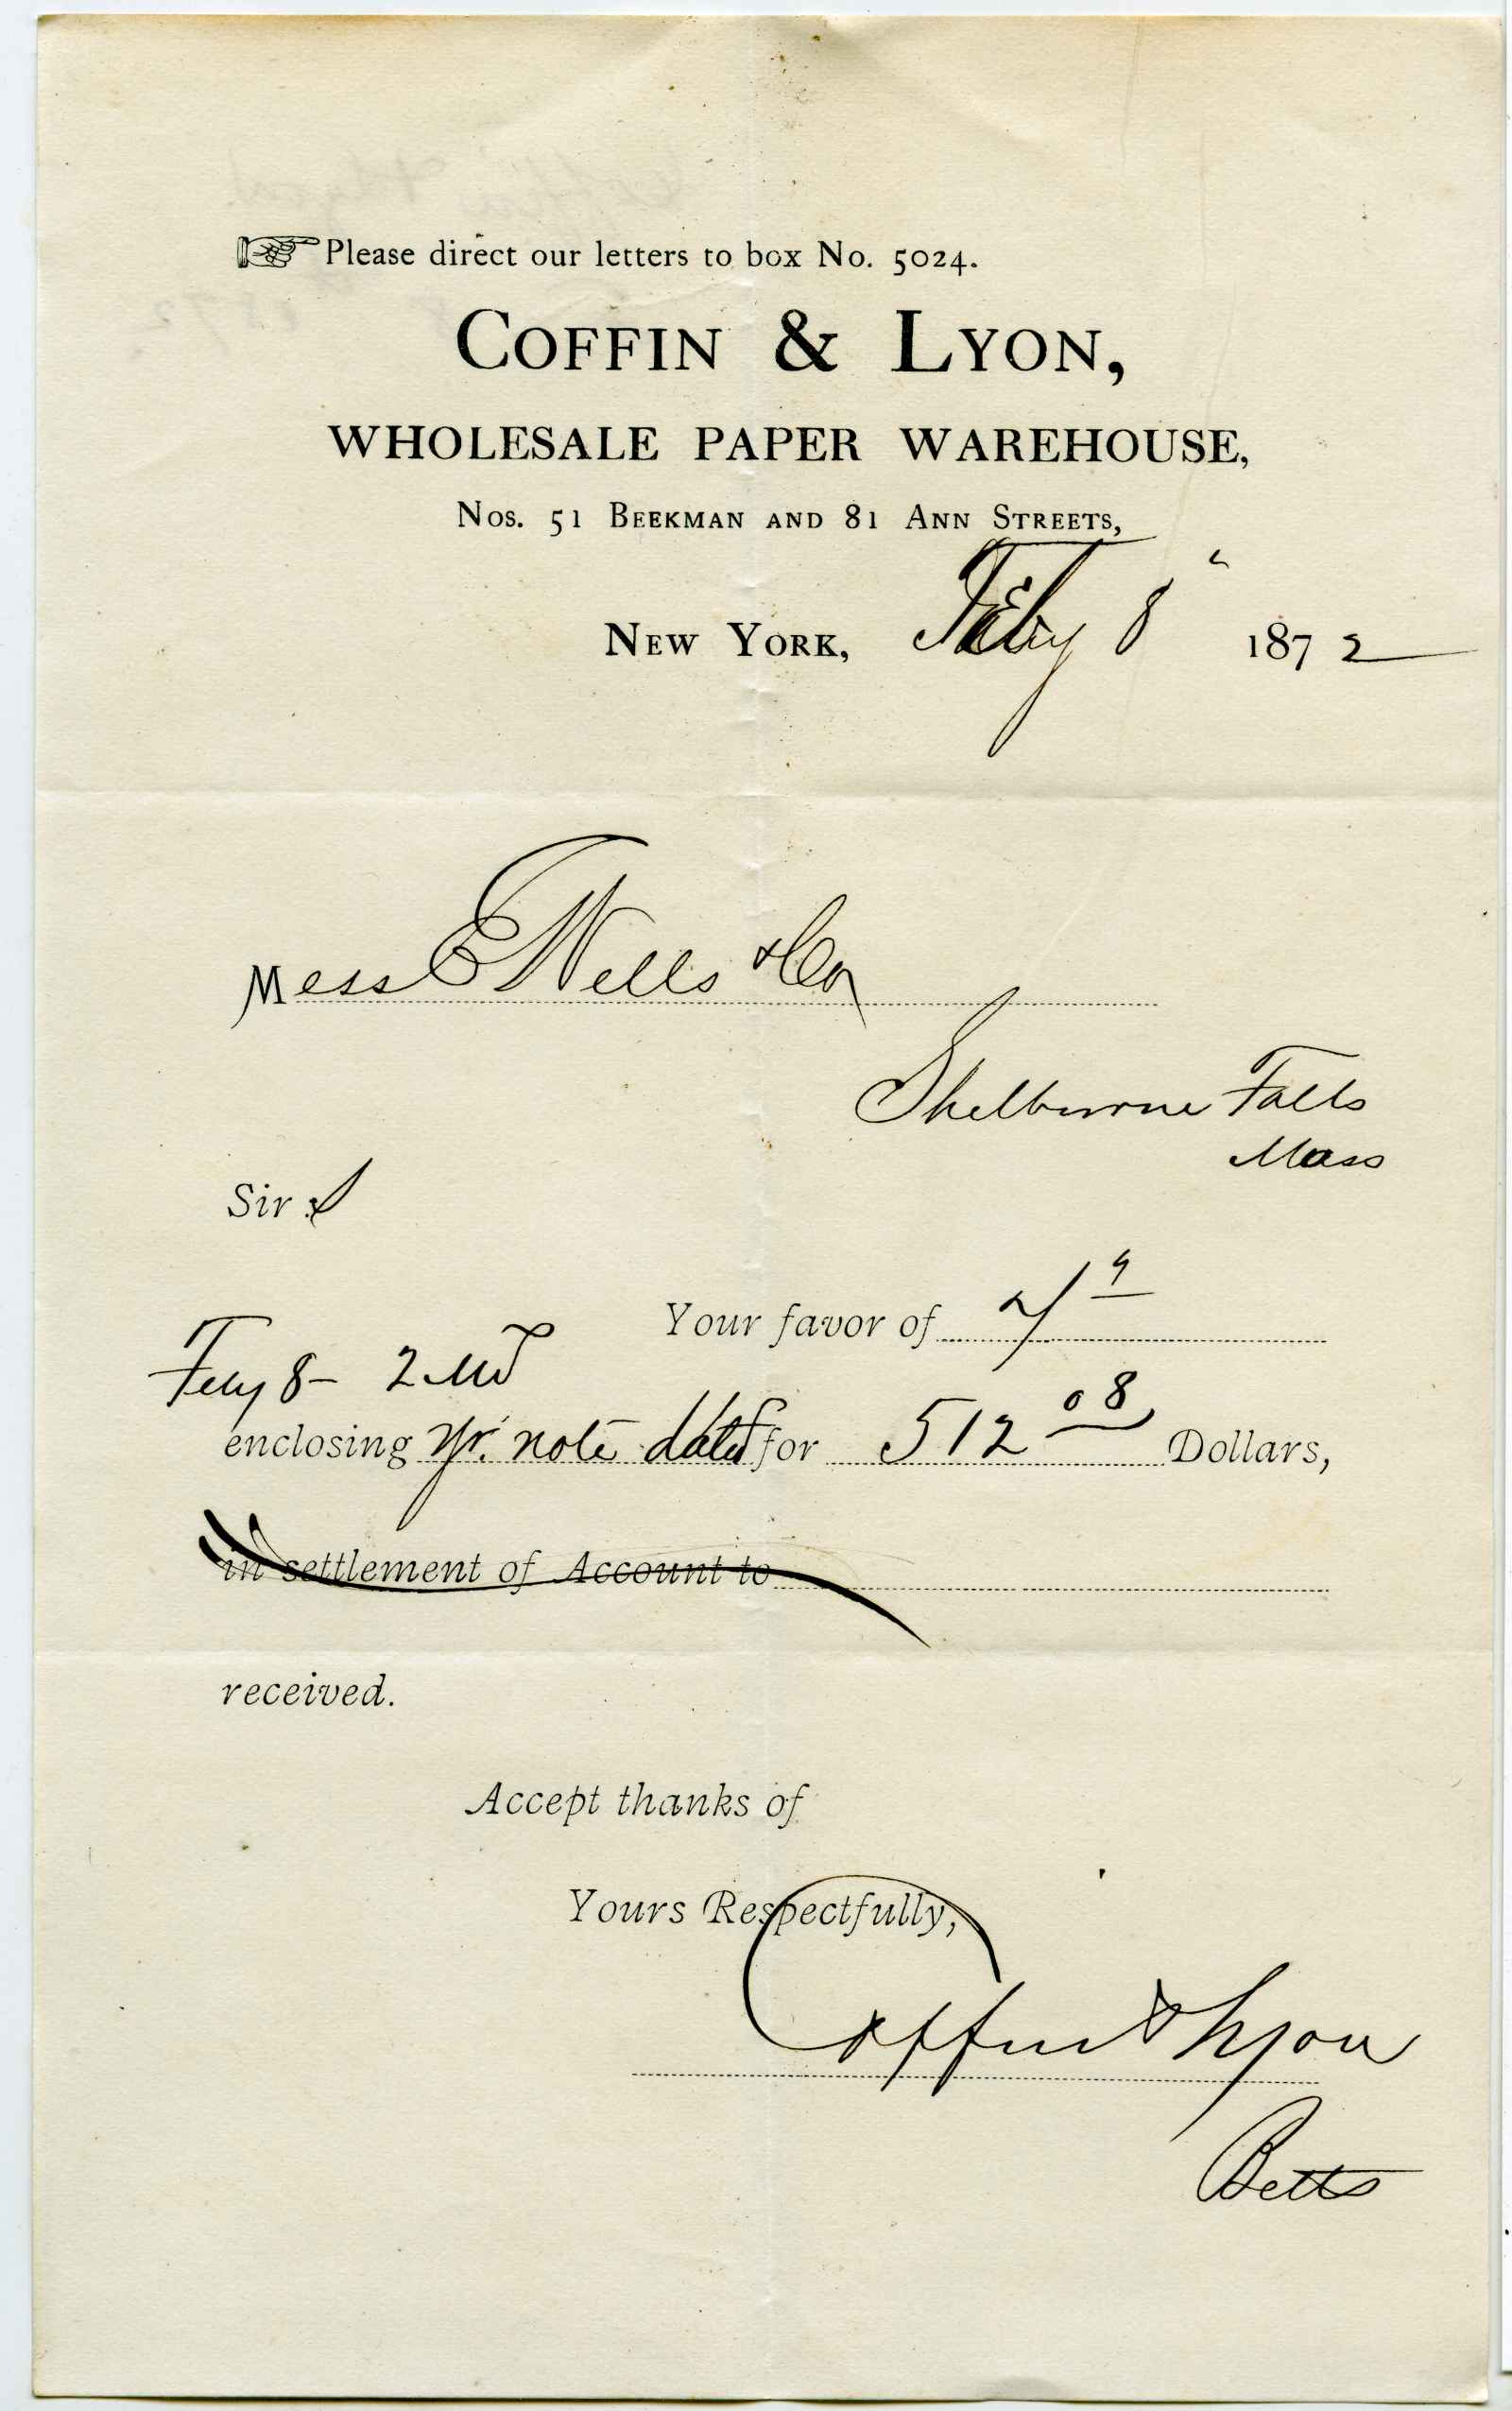 Please direct our letters to box No. 5024.
COFFIN & LYON,
WHOLESALE PAPER WAREHOUSE,
Nos. 51 BEEKMAN AND 81 ANN STREETS,
NEW YORK, Feby 8" 1872
Mess E Wells & Co
Shelburne Falls
Mass
Sirs
Your favor of
Feby 8 - 2 Md
enclosing yr. note dated for 512 08 Dollars,
in settlement of Account to
received.
Accept thanks of
Yours Respectfully,
Coffin & Lyon
Betts